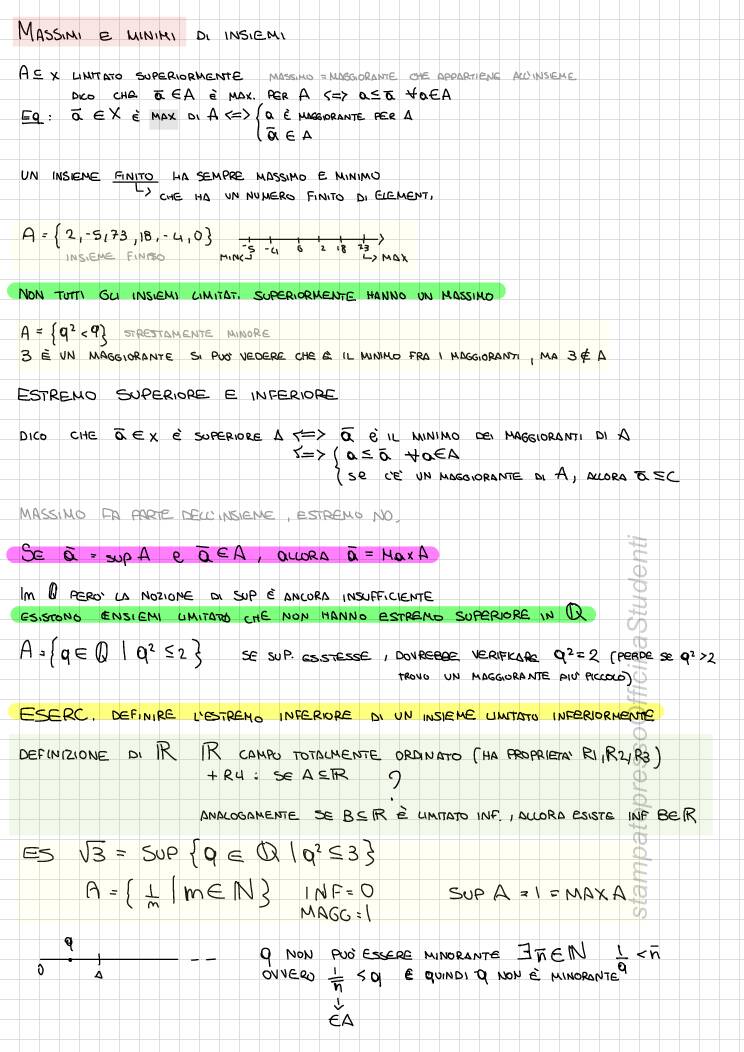 MASSIMI E MINIMI DI INSIEMI
A ⊆ X LIMITATO SUPERIORMENTE MASSIMO = MAGGIORANTE CHE APPARTIENE ALL'INSIEME
DICO CHE ā ∈ A È MAX. PER A <=> a ≤ ā ∀a ∈ A
Eq: ā ∈ X È MAX DI A <=> { a È MAGGIORANTE PER A
ā ∈ A
UN INSIEME FINITO HA SEMPRE MASSIMO E MINIMO
↳ CHE HA UN NUMERO FINITO DI ELEMENTI
A = {2, -5, 73, 18, -4, 0} -5 -4 0 2 18 73
INSIEME FINITO MIN MAX
NON TUTTI GLI INSIEMI LIMITATI SUPERIORMENTE HANNO UN MASSIMO
A = {q² < 9} STRETTAMENTE MINORE
3 È UN MAGGIORANTE SI PUÒ VEDERE CHE È IL MINIMO FRA I MAGGIORANTI, MA 3 ∉ A
ESTREMO SUPERIORE E INFERIORE
DICO CHE ā ∈ X È SUPERIORE A <=> ā È IL MINIMO DEI MAGGIORANTI DI A
<=> { a ≤ ā ∀a ∈ A
SE C'È UN MAGGIORANTE DI A, ALLORA ā ≤ C
MASSIMO FA PARTE DELL'INSIEME, ESTREMO NO.
SE ā = SUP A E ā ∈ A, ALLORA ā = MAX A
Im ℚ PERÒ LA NOZIONE DI SUP È ANCORA INSUFFICIENTE
ESISTONO ENSIEMI LIMITATO CHE NON HANNO ESTREMO SUPERIORE IN ℚ
A = {q ∈ ℚ | q² ≤ 2} SE SUP. ESISTESSE, DOVREBBE VERIFICARE q² = 2 (PERCHE SE q² > 2
TROVO UN MAGGIORANTE PIÙ PICCOLO)
ESERC. DEFINIRE L'ESTREMO INFERIORE DI UN INSIEME LIMITATO INFERIORMENTE
DEFINIZIONE DI ℝ ℝ CAMPO TOTALMENTE ORDINATO (HA PROPRIETÀ R1, R2, R3)
+ R4: SE A ⊆ ℝ ?
ANALOGAMENTE SE B ⊆ ℝ È LIMITATO INF., ALLORA ESISTE INF B ∈ ℝ
ES √3 = SUP {q ∈ ℚ | q² ≤ 3}
A = {1/m | m ∈ ℕ} INF = 0 SUP A = 1 = MAX A
MAGG = 1
q 0 1
q NON PUÒ ESSERE MINORANTE ∃ n̄ ∈ ℕ 1/q < n̄
OVVERO 1/n̄ < q E QUINDI q NON È MINORANTE
↓
∈ A
stampatopressoOfficinaStudenti